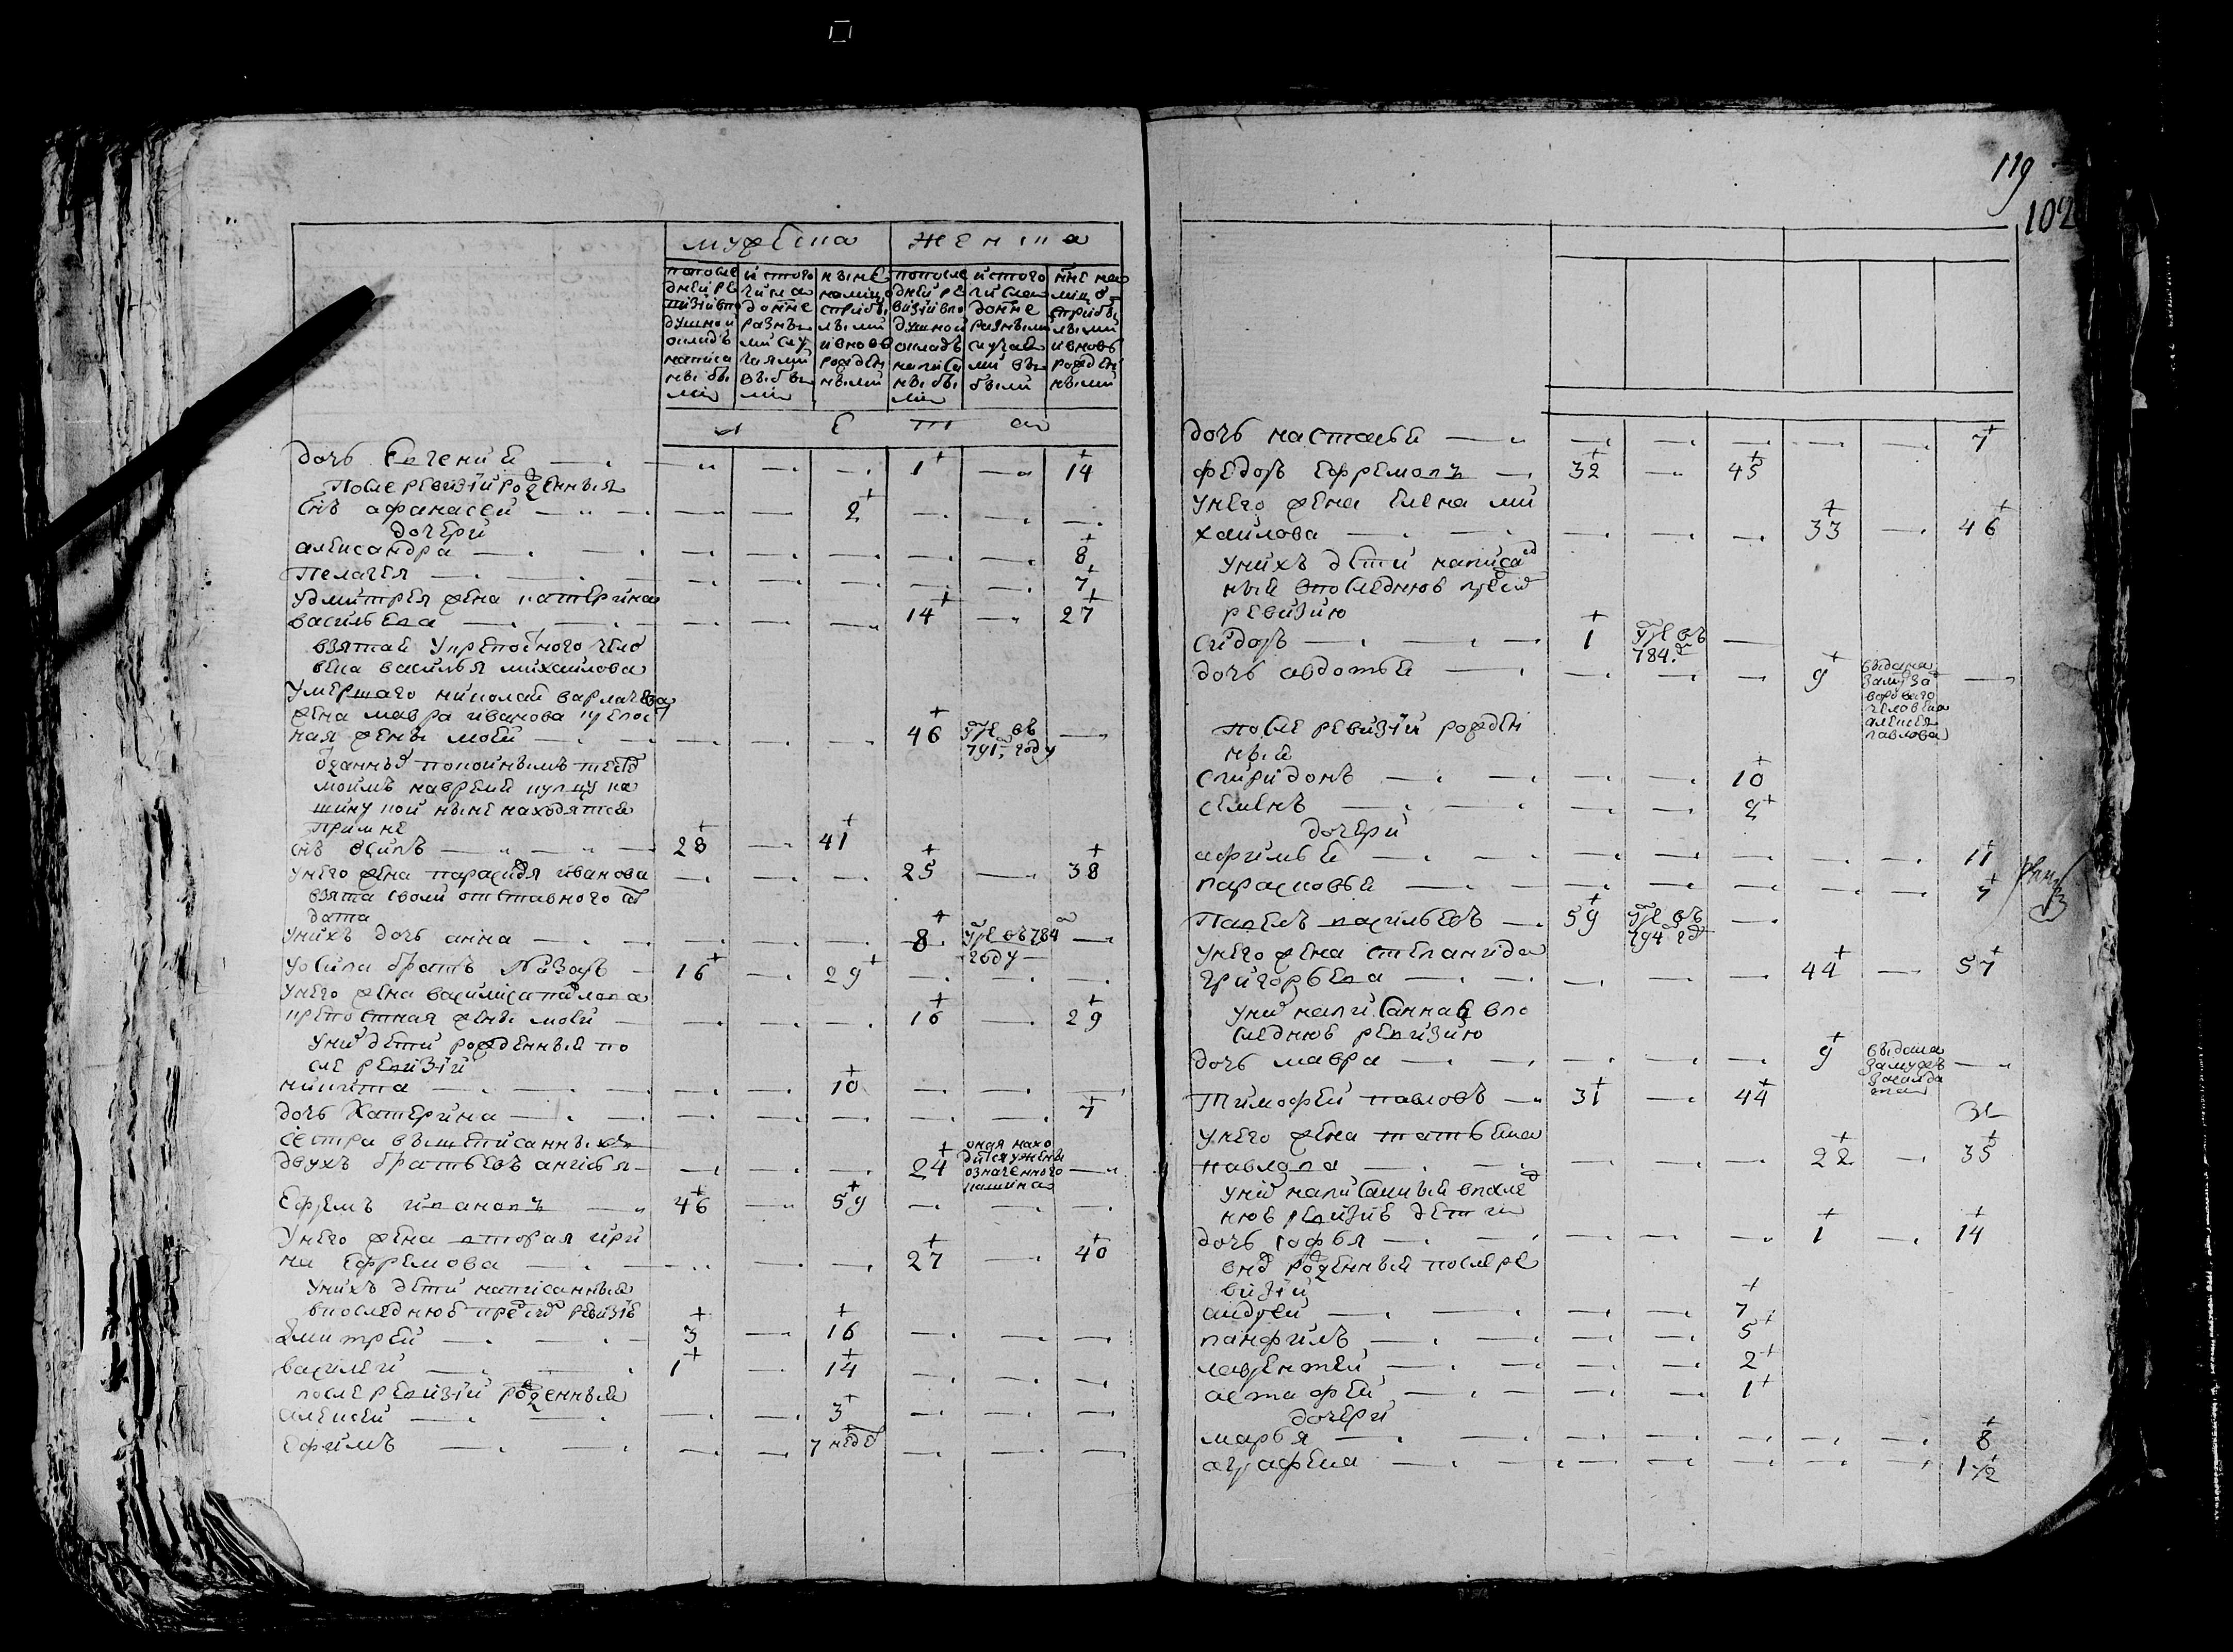 мужеска женска
после
дней ре
визiи впо
душной
окладъ
написа
ны бы
ли
и того
числа
до нне
разны
ми слу
чаями
выбы
ли
ныне
на лицо
с прибы
лыми
и вновь
рожден
ными
по после
дней ре
визiи впо
душной
окладъ
написа
ны бы
ли
и того
числа
до нне
разными
случая
ми вы
были
нне на
лицо
с прибы
лыми
и вновь
рожден
ными
л е т а
дочь Евгения 1 14
После ревизiи рожденныя
снъ афанасеи 2
дочери
александра 8
Пелагея 7
у дмитрея жена катерина
васильева 14 27
взятая у крепосного чело
века василья михаилова
Умершаго николая варлаева
жена мавра иванова крепос
ная жены моеи 46 умре въ 791 году
отданныя покоинымъ
моимъ на время купцу ка
шину кои ныне находятся
при мне
снъ осипъ 28 41
у него жена параскдя иванова 25 38
взята своли отставного сол
дата
у нихъ дочь анна 8 умре въ 784
году
у осипа братъ Назаръ 16 29
у него жена василиса павлова
крепостная жены моеи 16 29
у них дети рожденныя по
сле ревизiи
никита 10
дочь Катерина 7
сестра вышеписанныхъ
двухъ братьевъ анисья 24
оная нахо
дится у жены
означенного
кашина
Ефремъ ивановъ 46 59
У него жена вторая ири
на Ефремова 27 40
У нихъ дети написанныя
в последнюю пред ревизiю
дмитреи 3 16
василеи 1 14
после ревизiи рожденныя
алексеи 3
Ефимъ 7 недель
119
102
дочь настасья 7
федоръ ефремовъ 32 45
у него жена елена ми
хаилова 33 46
у нихъ дети написан
ныя в последнюю пред
ревизию
сидоръ 1 умре въ
784 г
дочь авдотья 9
выдана
замуж за
дворового
человека
алексея
павлова
после ревизiи рожден
ныя
спиридонъ 10
семенъ 2
дочери
афимья 11
парасковья 7
Павелъ васильевъ 59 умре въ
794 году
у него жена степанида
григорьева 44 57
у них написанная в по
следнюю ревизию
дочь мавра 9
выдана
замужъ
за солда
та
Тимофеи павловъ 31 44
у него жена татьяна
павлова 22 35
у них написанныя в послед
нюю ревизию дети
дочь софья 1 14
рожденныя после ре
визiи
андреи 7
панфилъ 5
лаврентеи 2
астафеи 1
дочери
марья 8
аграфена 1 1/2